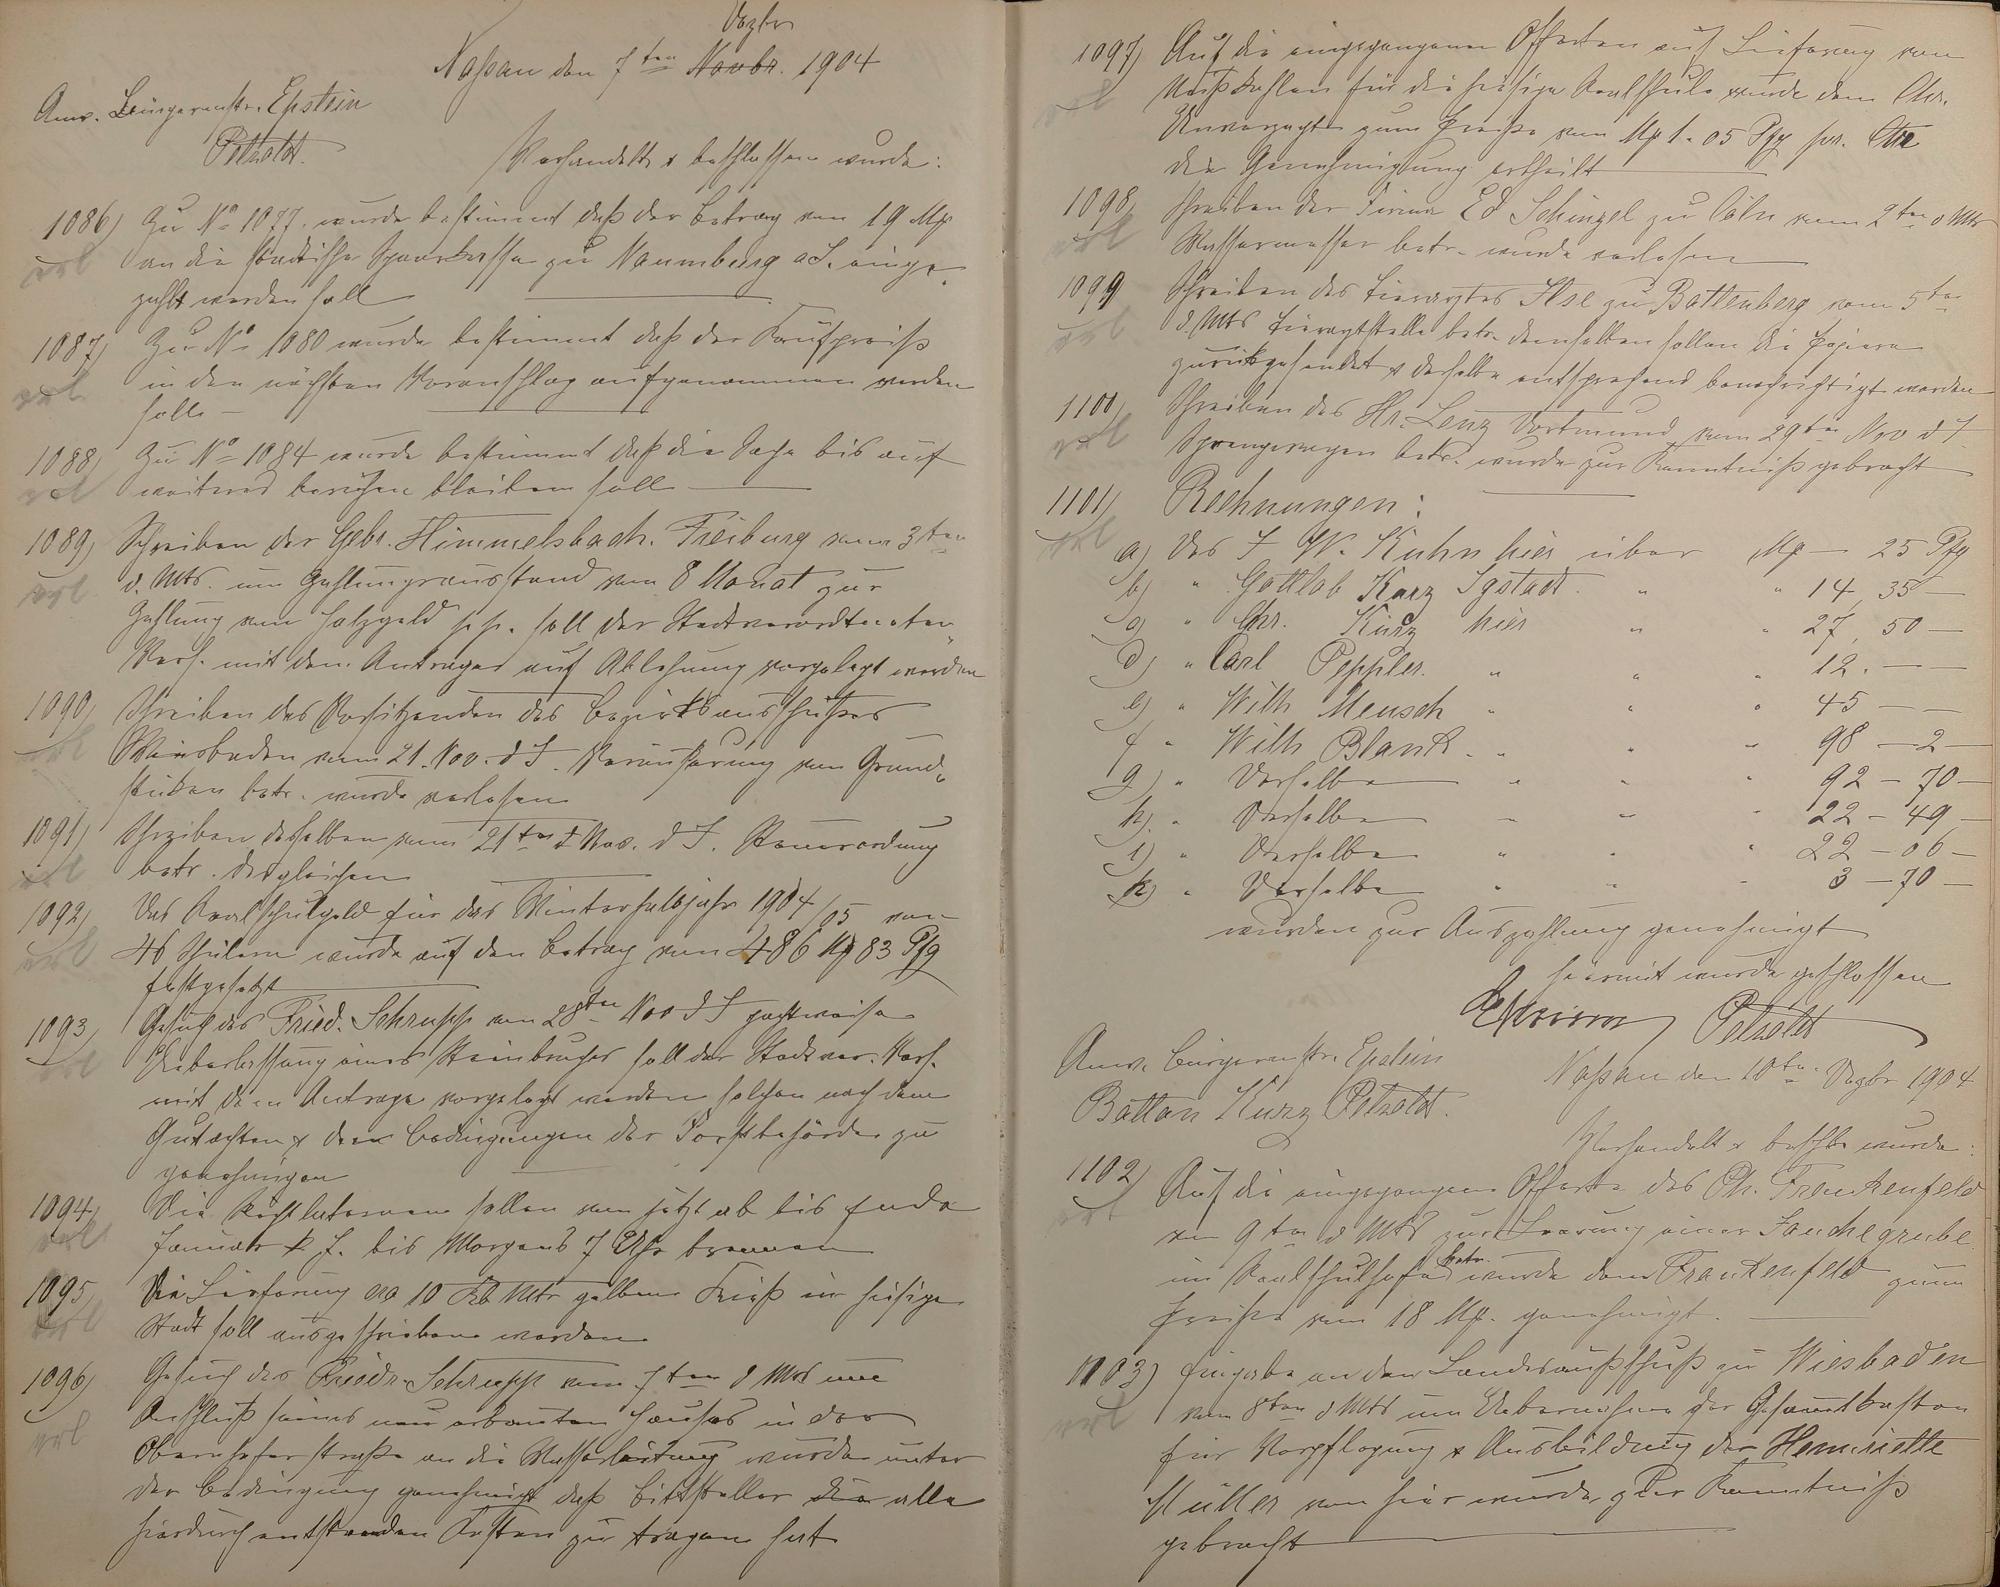 Dezbr
Naßau den 7ten Novbr. 1904
Anw. Bürgermstr. Epstein
Petzoldt.
Verhandelt & beschlossen wurde:
1086) Zu No 1077. wurde bestimmt daß der Betrag von 19 Mk
erl an die städtische Sparkasse zu Naumburg a S. einge-
zahlt werden soll
1087) Zu No 1080 wurde bestimmt daß der Kaufpreiß
erl in den nächsten Voranschlag aufgenommen werden
solle
1088) Zu No 1084 wurde bestimmt daß die Sache bis auf
erl weiteres beruhen bleiben soll
1089) Schreiben der Gebr. Himmelsbach. Freiburg vom 3ten
erl d. Mts. um Zahlungsausstand von 8 Monat zur
Zahlung von Holzgeld soll der Stadtverordneten
Vers. mit dem Antrage auf Ablehnung vorgelegt werden
1090) Schreiben des Vorsitzenden des Bezirksausschußes
erl Wiesbaden vom 21. Nov. d J. Veräußerung von Grund-
stücken betr. wurde verlesen
1091) Schreiben desselben vom 21ten Nov. d J. Steuerordnung
erl betr. desgleichen
1092) Das Realschulgeld für das Winterhalbjahr 1904/05 von
erl 46 Schülern wurde auf den Betrag von 486 Mk 83 Pfg
festgesetzt
1093) Gesuch des Fried. Schrupp vom 28ten Nov d J pachtweise
erl Ueberlassung eines Steinbruches soll der Stadtver. Vers.
mit dem Antrage vorgelegt werden solchen nach dem
Gutachten & den Bedingungen der Forstbehörde zu
genehmigen
1094) Die Nachtlaternen sollen von jetzt ab bis Ende
erl Januar k. J. bis Morgens 7 Uhr brennen
1095 Die Lieferung von 10 Kb Mtr gelben Kieß in hiesige
erl Stadt soll ausgeschrieben werden
1096) Gesuch des Friedr. Schrupp vom 7ten d Mts um
erl Anschluß seines neu erbauten Hauses in der
Obernhoferstraße an die Wasserleitung wurde unter
der Bedingung genehmigt daß Bittsteller die alle
hierdurch entstehenden Kosten zu tragen hat
1097) Auf die eingegangenen Offerten auf Lieferung von
erl Nußkohlen für die hiesige Realschule wurde dem Chr.
Unverzagt zum Preise von Mk 1. 05 Pfg pr. Ctr
die Genehmigung ertheilt
1098) Schreiben der Firma Ed Schinzel zu Cöln vom 2ten d Mts
erl Wassermesser betr. wurde verlesen
1099 Schreiben des Tierarztes Ilse zu Battenberg vom 5ten
erl d Mts Tierarztstelle betr. demselben sollen die Papiere
zurückgesendet & derselbe entsprechend benachrichtigt werden
1100) Schreiben des Hr. Lenz Dortmund vom 29ten Nov d J
erl Sprengwagen betr. wurde zur Kenntniß gebracht
1101) Rechnungen:
erl a) des J W. Kuhn hier über Mk — 25 Pfg
b) " Gottlob Karz Igstadt. " " 14, 35 —
c) " Chr. Kurz hier " " 27, 50 —
d) " Carl Peppler. " " " 12. — —
e) " Wilh Mensch " " " 45 — —
f " Wilh Blank. " " " 98 — 2 —
g) " Derselbe " " " 92 — 70 —
h). " Derselbe " " " 22 — 49 —
i) " Derselbe " " " 22 — 06 —
k) " Derselbe " " " 3 — 70 —
wurden zur Auszahlung genehmigt
hiermit wurde geschlossen
Epstein Petzoldt
Anw. Bürgermstr. Epstein
Naßau den 10ten Dezbr 1904
Battan Kurz Petzoldt.
Verhandelt & beschl. wurde:
1102) Auf die eingegangene Offerte des Ch. Frankenfeld
erl vom 9ten d Mts zur Leerung einer Jauchegrube
im Realschulhofe betr. wurde dem Frankenfeld zum
Preise von 18 Mk. genehmigt.
1103) Eingabe an den Landesausschuß zu Wiesbaden
erl vom 8ten d Mts um Uebernahme der Gesamtkosten
für Verpflegung & Ausbildung der Henriette
Müller von hier wurde zur Kenntniß
gebracht